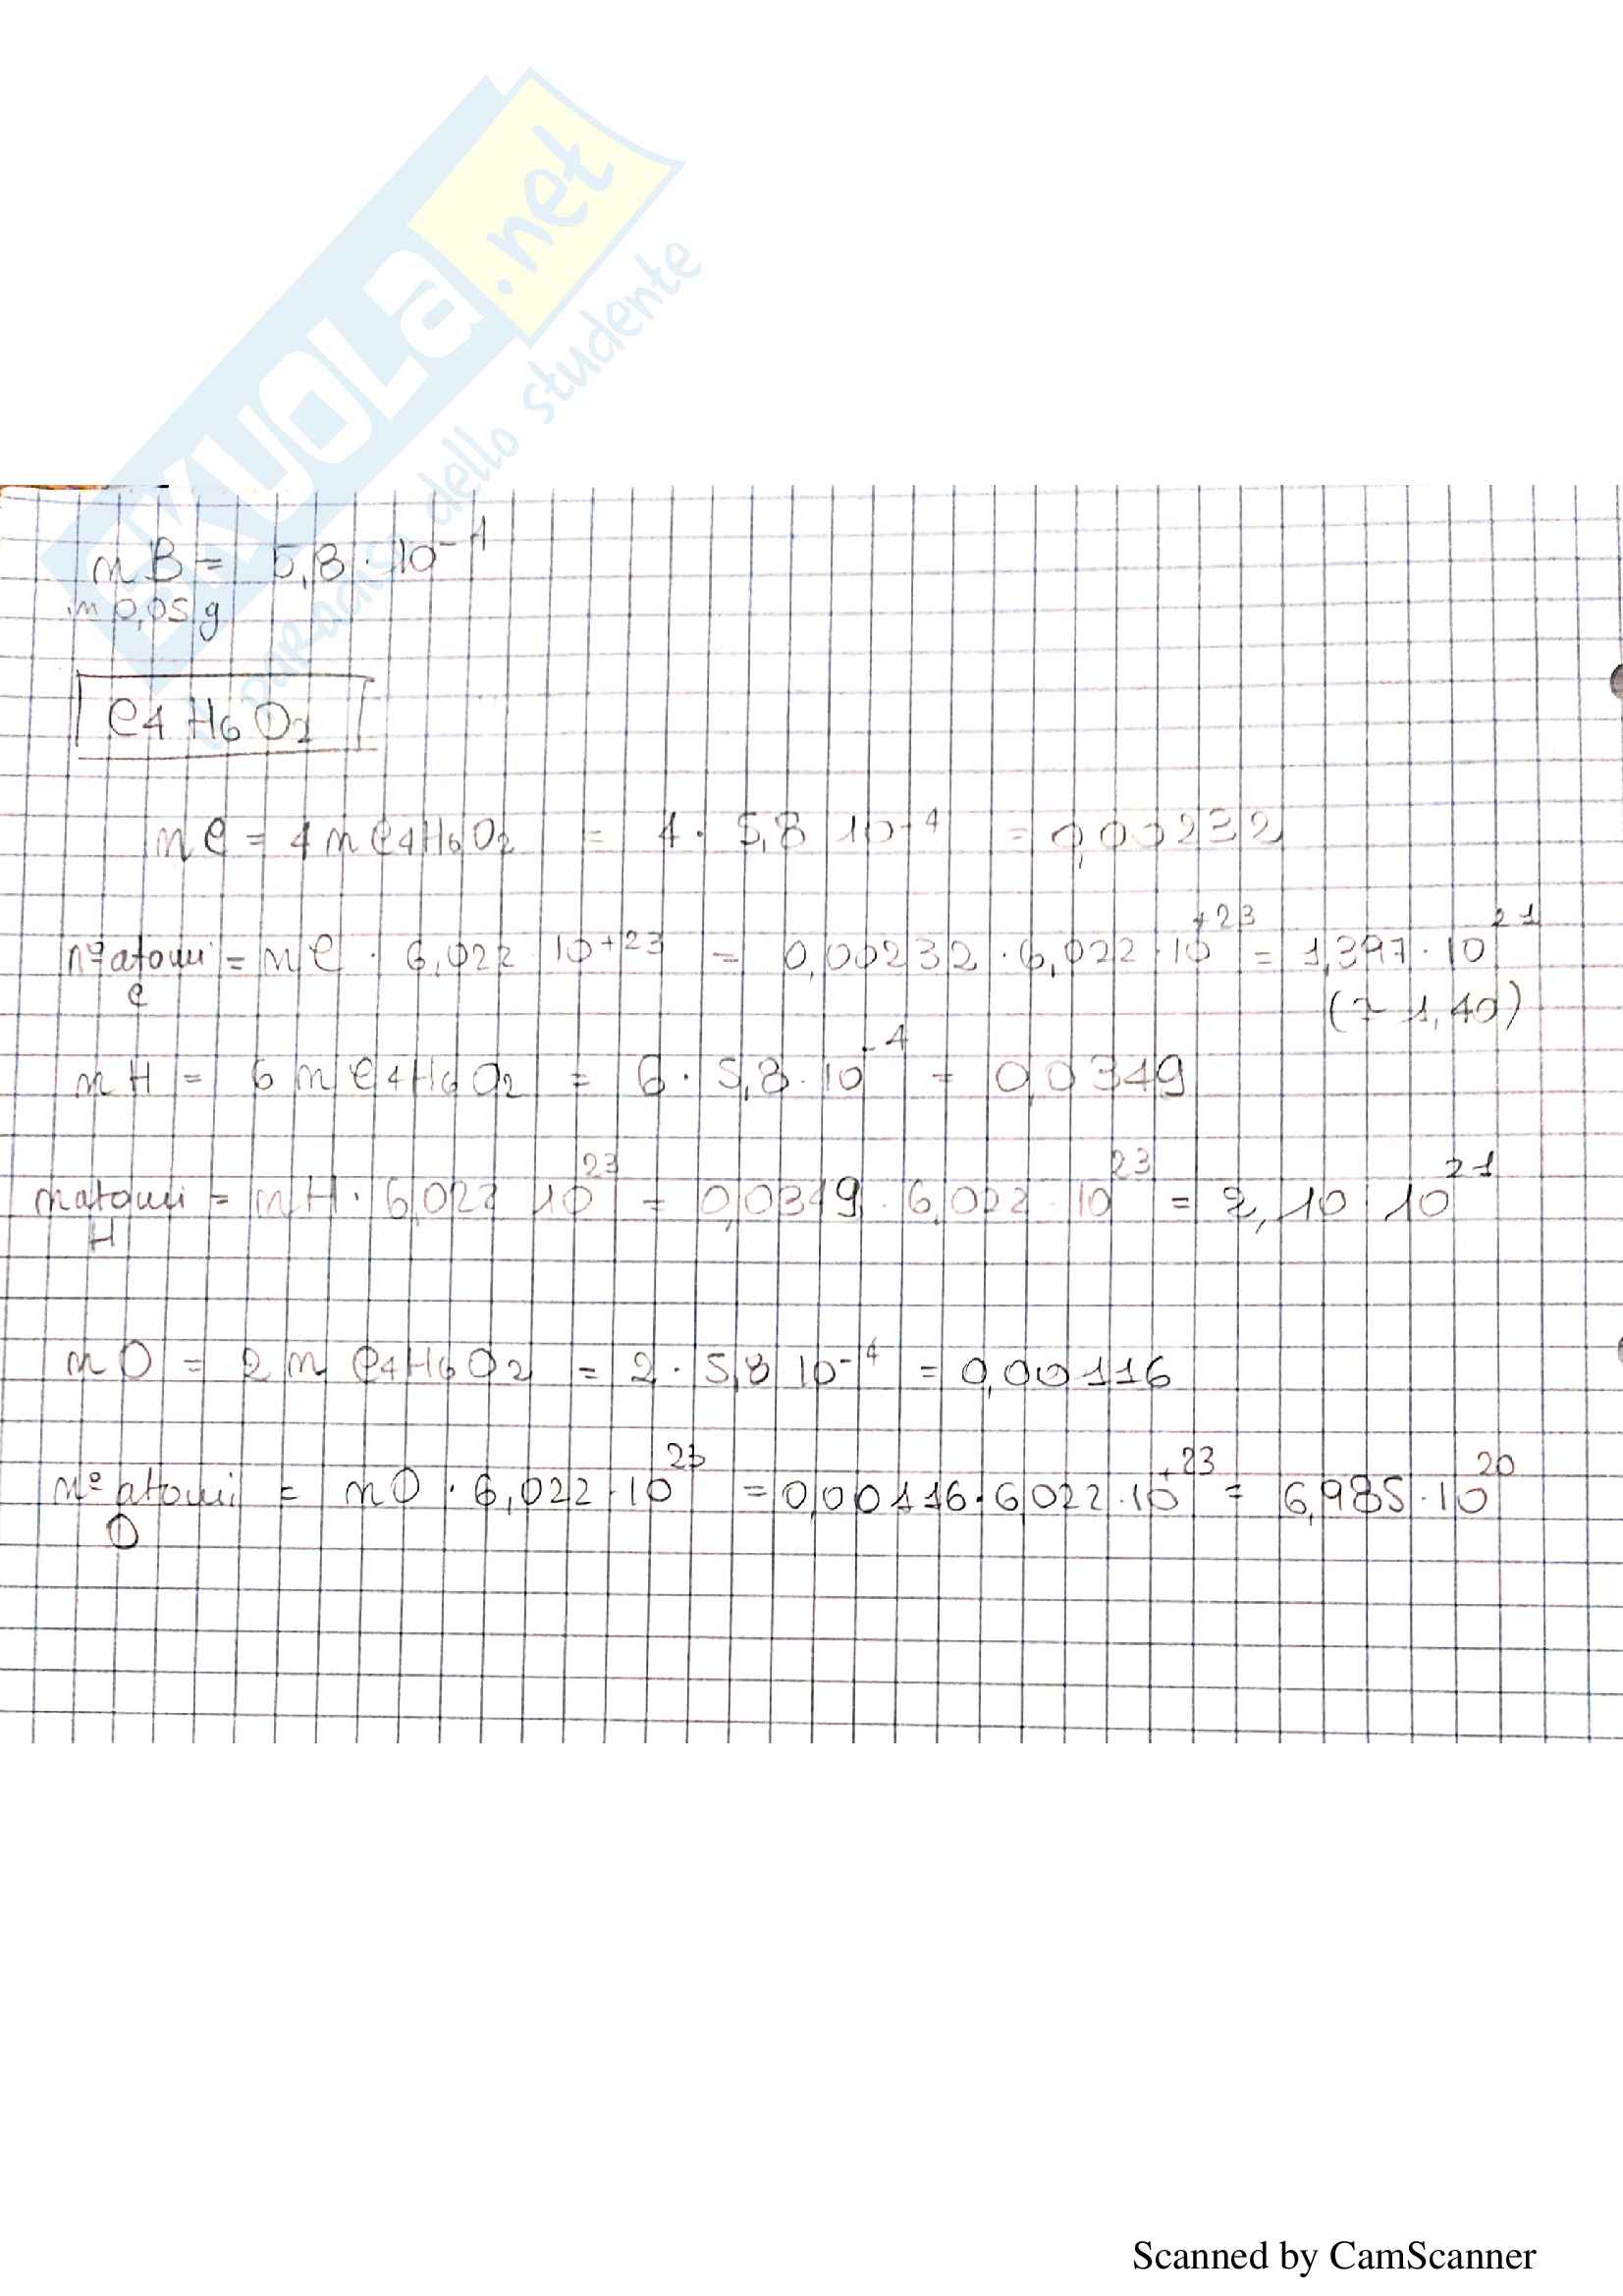 SKUOLA.net
il paradiso dello studente
n B = 5,8 · 10⁻⁴
in 0,05 g
C4 H6 O2
n C = 4 n C4H6O2 = 4 · 5,8 10⁻⁴ = 0,00232
n° atomi = n C · 6,022 · 10⁺²³ = 0,00232 · 6,022 · 10⁺²³ = 1,397 · 10²¹
C
1,40)
n H = 6 n C4H6O2 = 6 · 5,8 · 10⁻⁴ = 0,0349
n atomi = n H · 6,022 10²³ = 0,0349 · 6,022 · 10²³ = 2,10 · 10²¹
H
n O = 2 n C4H6O2 = 2 · 5,8 10⁻⁴ = 0,00116
n° atomi = n O · 6,022 · 10²³ = 0,00116 · 6,022 · 10⁺²³ = 6,985 · 10²⁰
O
Scanned by CamScanner